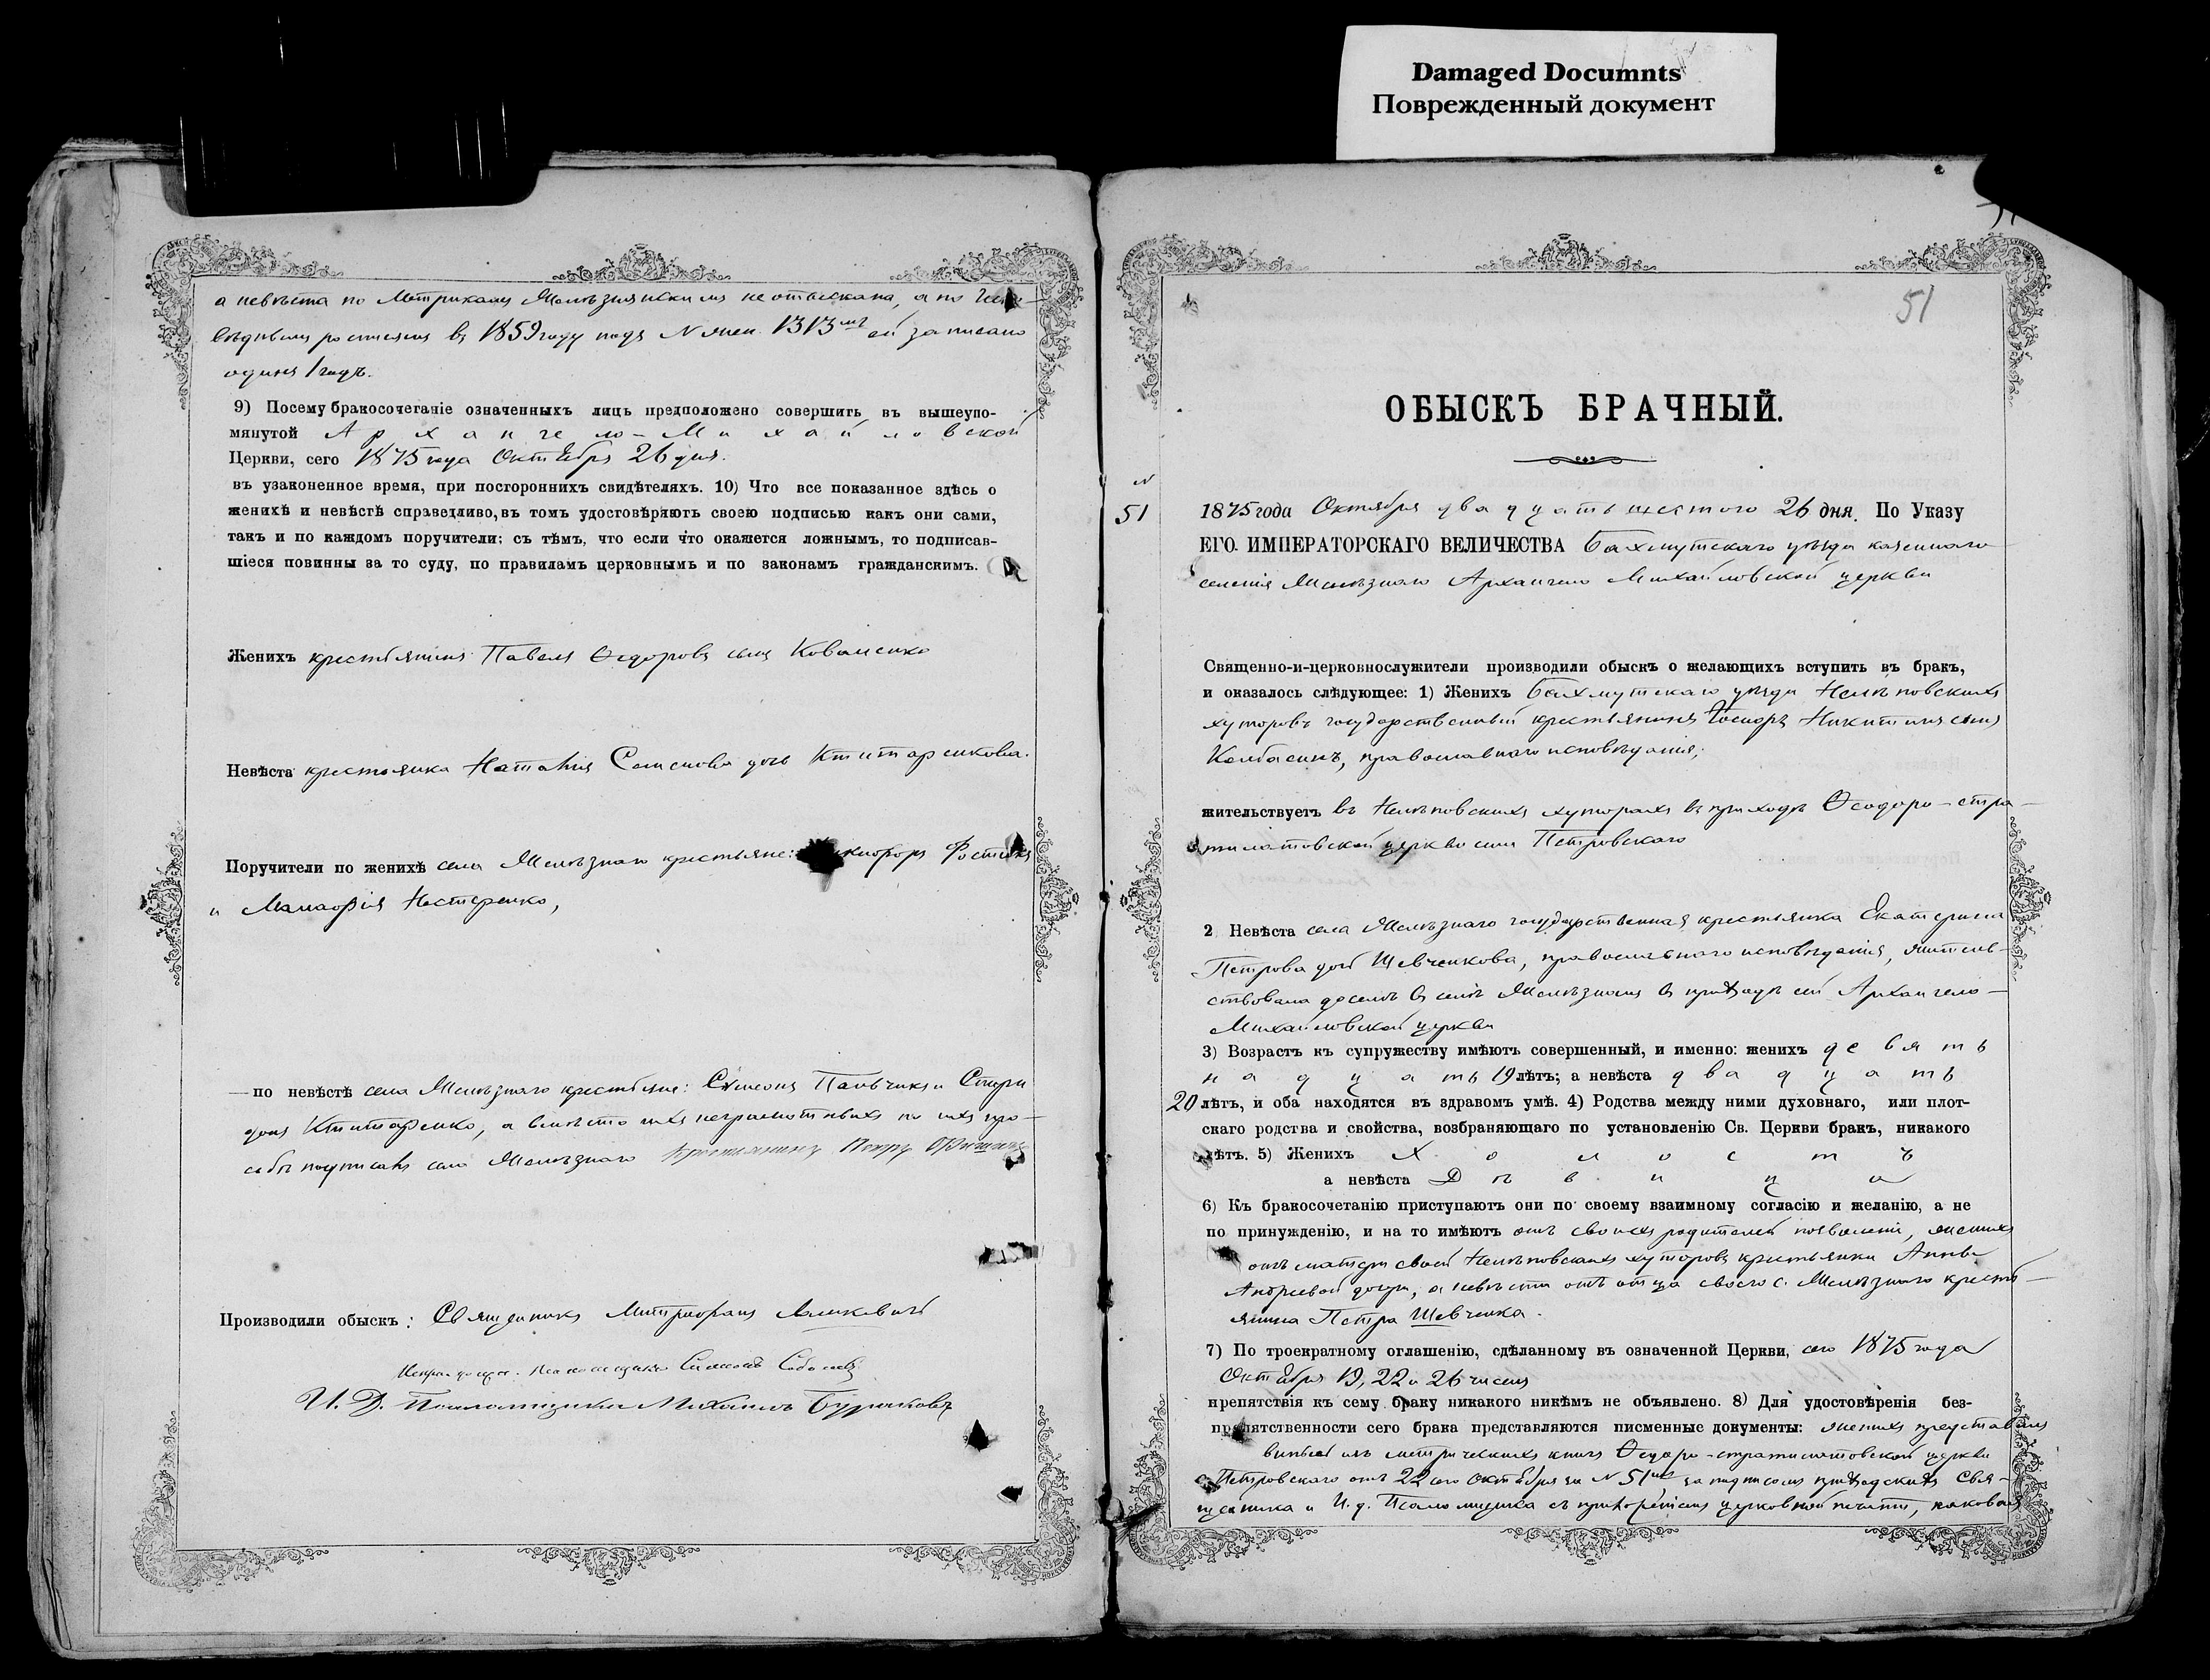 Damaged Documnts
Поврежденный документ
а невѣста по Метрикамъ Желѣзнянскимъ не отыскана, а по
вѣднымъ росписямъ въ 1859 году подъ N жен. 1313мъ ей записано
одинъ 1 годъ.
9) Посему бракосочетаніе означенныхъ лицъ предположено совершить въ вышеупо-
мянутой Архангело-Михайловской
Церкви, сего 1875 года Октября 26 дня.
въ узаконенное время, при постороннихъ свидѣтеляхъ. 10) Что все показанное здѣсь о
женихѣ и невѣстѣ справедливо, въ томъ удостовѣряютъ своею подписью какъ они сами,
такъ и по каждомъ поручители; съ тѣмъ, что если что окажется ложнымъ, то подписав-
шіеся повинны за то суду, по правиламъ церковнымъ и по законамъ гражданскимъ.
Женихъ крестьянинъ Павелъ Ѳедоровъ сынъ Коваленко
Невѣста крестьянка Наталія Семенова дочь Ктитаренкова.
Поручители по женихѣ села Желѣзнаго крестьяне:
и Нестеренко,
—по невѣстѣ села Желѣзнаго крестьяне: Симеонъ и
донъ Ктитаренко, а вмѣсто ихъ неграмотныхъ по ихъ про-
сьбѣ подписалъ села Желѣзнаго крестьянинъ Петръ
Производили обыскъ: Священникъ Митрофанъ
Симеонъ
И. Д. Псаломщика Михаилъ Бураковъ
51
ОБЫСКЪ БРАЧНЫЙ.
N
51
1875 года Октября двадцать шестого 26 дня. По Указу
ЕГО ИМПЕРАТОРСКАГО ВЕЛИЧЕСТВА Бахмутскаго уѣзда казеннаго
селенія Желѣзнаго Архангело Михайловской церкви
Священно-и-церковнослужители производили обыскъ о желающихъ вступить въ бракъ,
и оказалось слѣдующее: 1) Женихъ Бахмутскаго уѣзда Нелѣповскихъ
хуторовъ государственный крестьянинъ Никитинъ сынъ
Колбасинъ, православнаго исповѣданія;
жительствуетъ въ Нелѣповскихъ хуторахъ въ приходѣ Ѳеодоро-стра-
тилатовской церкви села Петровскаго
2 Невѣста села Желѣзнаго государственная крестьянка Екатерина
Петрова дочь Шевченкова, православнаго исповѣданія, житель-
ствовала доселѣ въ селѣ Желѣзномъ въ приходѣ сей Архангело-
Михайловской церкви
3) Возрастъ къ супружеству имѣютъ совершенный, и именно: женихъ девять
надцать 19 лѣтъ; а невѣста двадцать
20 лѣтъ, и оба находятся въ здравомъ умѣ. 4) Родства между ними духовнаго, или плот-
скаго родства и свойства, возбраняющаго по установленію Св. Церкви бракъ, никакого
нѣтъ. 5) Женихъ Холостъ
а невѣста Дѣвица
6) Къ бракосочетанію приступаютъ они по своему взаимному согласію и желанію, а не
по принужденію, и на то имѣютъ отъ своихъ родителей позволеніе, женихъ
отъ матери своей Нелѣповскихъ хуторовъ крестьянки Анны
Андреевой дочери, а невѣста отъ отца своего с. Желѣзнаго кресть-
янина Петра Шевченка.
7) По троекратному оглашенію, сдѣланному въ означенной Церкви, сего 1875 года
Октября 19, 22 и 26 чиселъ
препятствія къ сему браку никакого никѣмъ не объявлено. 8) Для удостовѣренія без-
препятственности сего брака представляются писменные документы: женихъ представилъ
выпись изъ метрическихъ книгъ Ѳеодоро-стратилатовской церкви
с. Петровскаго отъ 22 сего Октября за N 51мъ за подписомъ приходскихъ Свя-
щенника и И. д. Псаломщика съ приложеніемъ церковной печати, каковая